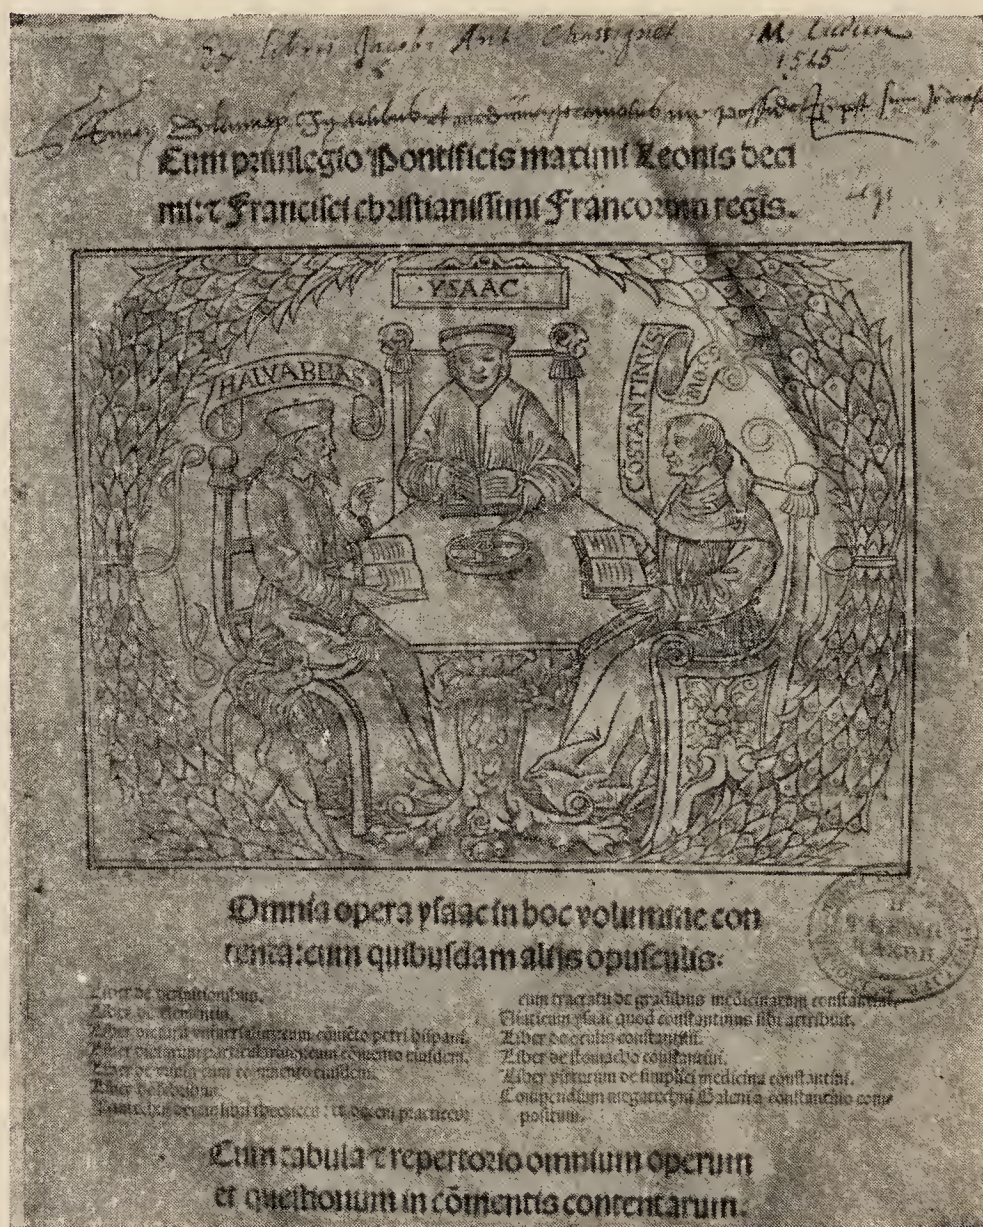 Ex libris Jacobi Ant. Chassignet
1515
Cum priuilegio Pontificis maximi Leonis deci
mi: ⁊ Francisci christianissimi Francorum regis.
·YSAAC·
HALYABBAS
CŌSTANTINVS
Omnia opera ysaac in hoc volumine con
tenta: cum quibusdam alijs opusculis:
Liber de definitionibus.
Liber de elementis.
Liber dietarum vniuersalium: cum cōmēto petri hispani.
Liber dietarum particularium: cum cōmento eiusdem.
Liber de vrinis cum commento eiusdem.
Liber de febribus.
cum tractatu de gradibus medicinarum constantini.
Viaticum ysaac quod constantinus sibi attribuit.
Liber de oculis constantini.
Liber de stomacho constantini.
Liber virtutum de simplici medicina constantini.
Compendium megatechni Galeni a constantino com
positum.
Cum tabula ⁊ repertorio omnium operum
et questionum in cōmentis contentarum.